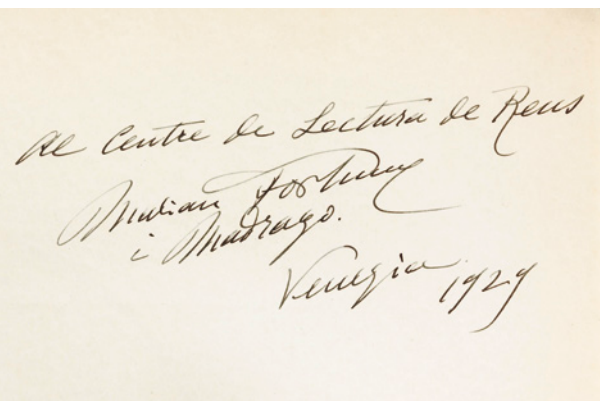 Al Centre de Lectura de Reus
Marian Fortuny
i Madrazo.
Venezia 1929